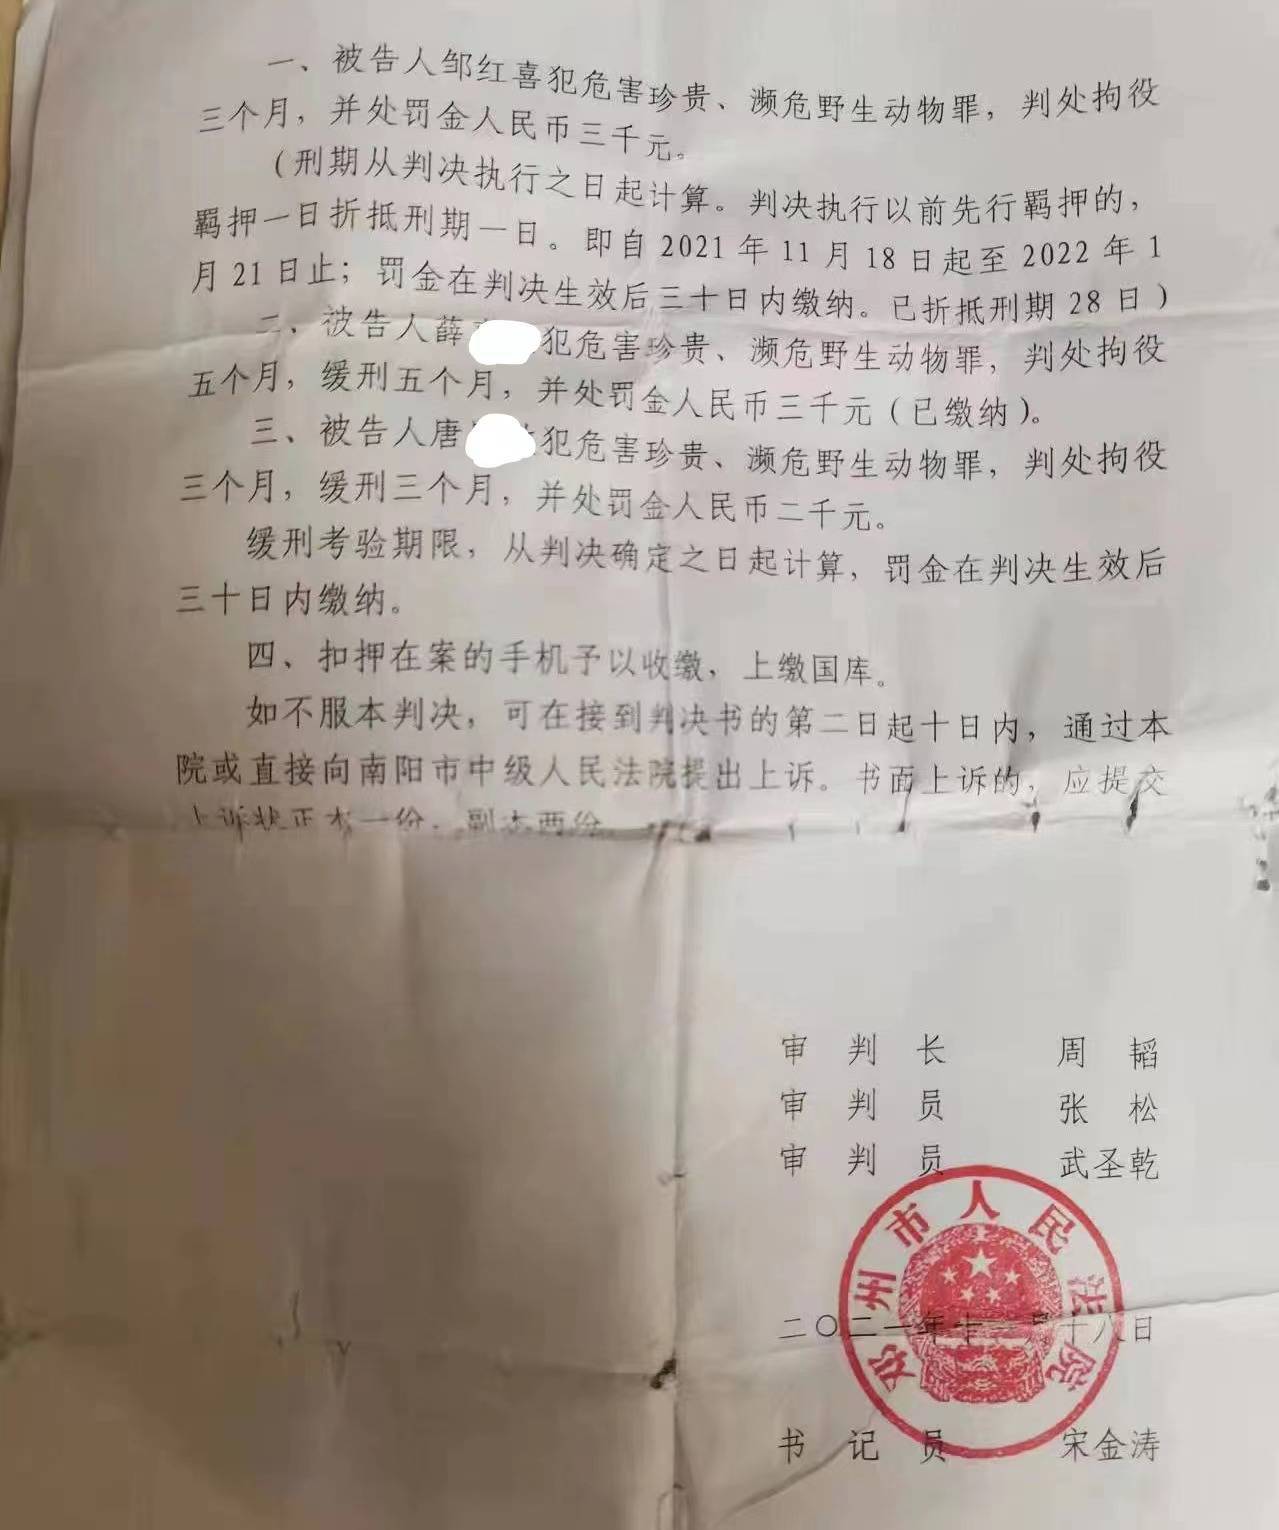 一、被告人邹红喜犯危害珍贵、濒危野生动物罪，判处拘役
三个月，并处罚金人民币三千元。
（刑期从判决执行之日起计算。判决执行以前先行羁押的，
羁押一日折抵刑期一日。即自2021年11月18日起至2022年1
月21日止；罚金在判决生效后三十日内缴纳。已折抵刑期28日）
二、被告人薛 犯危害珍贵、濒危野生动物罪，判处拘役
五个月，缓刑五个月，并处罚金人民币三千元（已缴纳）。
三、被告人唐 犯危害珍贵、濒危野生动物罪，判处拘役
三个月，缓刑三个月，并处罚金人民币二千元。
缓刑考验期限，从判决确定之日起计算，罚金在判决生效后
三十日内缴纳。
四、扣押在案的手机予以收缴，上缴国库。
如不服本判决，可在接到判决书的第二日起十日内，通过本
院或直接向南阳市中级人民法院提出上诉。书面上诉的，应提交
上诉状正本一份，副本两份。
审判长 周韬
审判员 张松
审判员 武圣乾
邓州市人民法院
二〇二一年十一月十八日
书记员 宋金涛